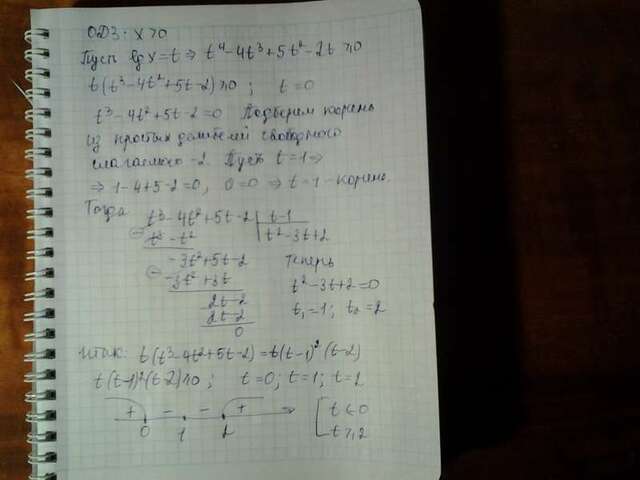 ОДЗ: x>0
Пусть lg x = t ⇒ t⁴-4t³+5t²-2t ≥ 0
t(t³-4t²+5t-2) ≥ 0; t=0
t³-4t²+5t-2=0 Подберем корень
из простых делителей свободного
слагаемого -2. Пусть t=1 ⇒
⇒ 1-4+5-2=0, 0=0 ⇒ t=1 - корень.
Тогда
t³-4t²+5t-2 | t-1
t³-t² | t²-3t+2
-3t²+5t-2 Теперь
-3t²+3t t²-3t+2=0
2t-2 t₁=1; t₂=2
2t-2
0
Итак: t(t³-4t²+5t-2)=t(t-1)²(t-2)
t(t-1)²(t-2) ≥ 0; t=0; t=1; t=2
+ - - + [ t ≤ 0
0 1 2 t ≥ 2